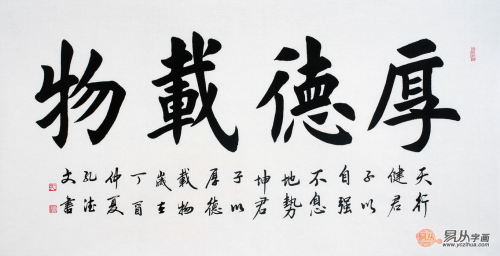 厚德載物
天行
健君
子以
自强
不息
地勢
坤君
子以
厚德
載物
歲在
丁酉
仲夏
孔
文書
易从字画
www.yczihua.com